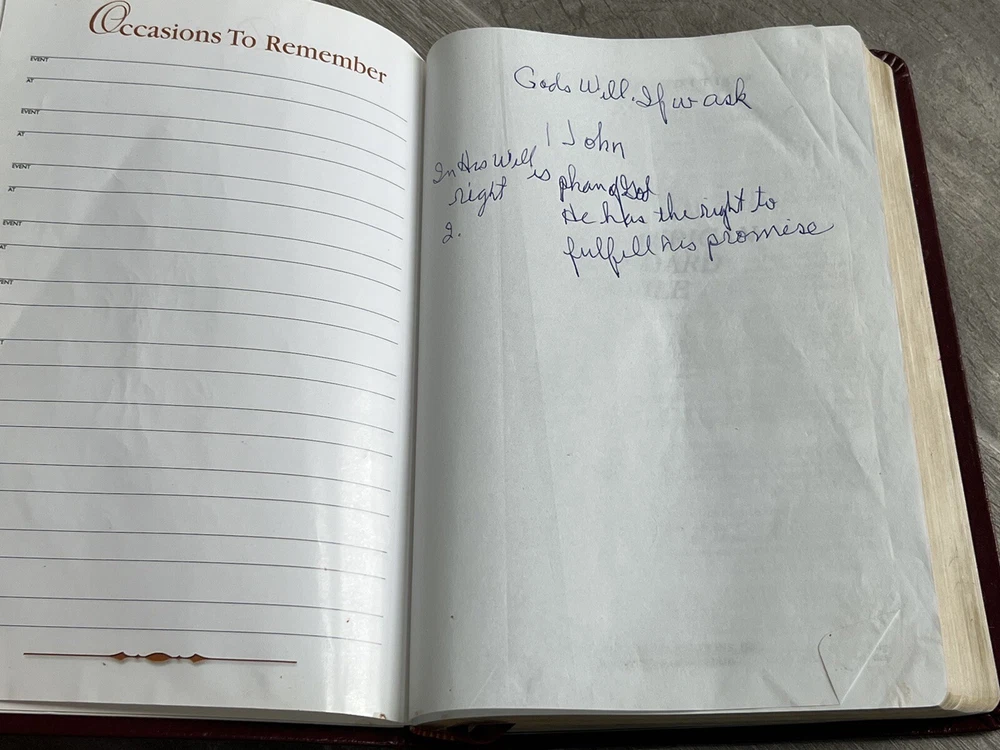 Occasions To Remember
EVENT
AT
EVENT
AT
EVENT
AT
EVENT
AT
EVENT
Gods Will. If w ask
1 John
In His Will
right is
2.
He has the right to
fulfill his promise